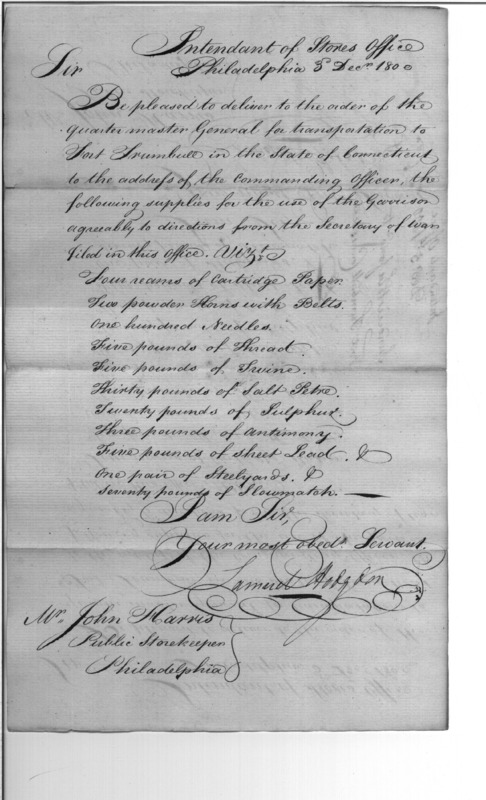 Intendant of Stores Office
Sir Philadelphia 3 Decr. 1800
Be pleased to deliver to the order of the
quarter master General for transportation to
Fort Trumbull in the State of Connecticut
to the address of the Commanding Officer, the
following supplies for the use of the Garrison
agreeably to directions from the Secretary of War
filed in this Office. Vizt.
Four reams of Cartridge Paper
Two powder Horns with Belts.
One hundred Needles.
Five pounds of Thread.
Five pounds of Twine.
Thirty pounds of Salt Petre.
Twenty pounds of Sulphur.
Three pounds of Antimony.
Five pounds of sheet Lead. &
One pair of Steelyards. &
Seventy pounds of Slowmatch.
I am Sir,
Your most obedt. Servant.
Samuel Hodgdon
Mr. John Harris
Public Storekeeper
Philadelphia